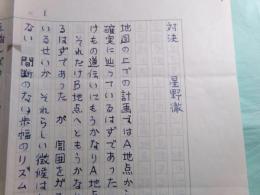 対決　星野徹
地図の上での計画ではA地点から
確実に辿っているはずであった
けもの道伝いにもうかなりA地点
それだけB地点へともうかな
るはずであった　が　周囲をが
いるせいか　それらしい徴候は
ない　間断のない歩幅のリズム